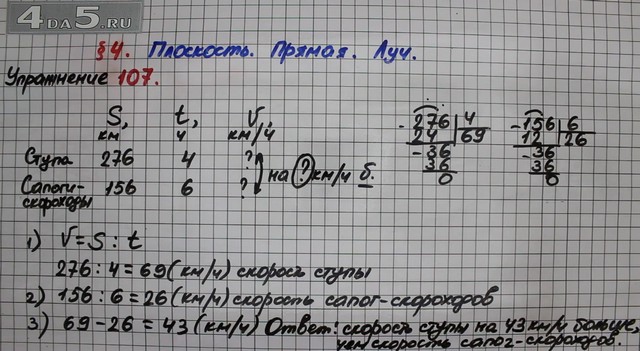 4DA5.RU
§4. Плоскость. Прямая. Луч.
Упражнение 107.
S, км t, ч V, км/ч
Ступа 276 4 ?
Сапоги-скороходы 156 6 ?
на ? км/ч б.
276 4
24 69
36
36
0
156 6
12 26
36
36
0
1) V=S:t
276:4=69(км/ч) скорость ступы
2) 156:6=26(км/ч) скорость сапог-скороходов
3) 69-26=43(км/ч) Ответ: скорость ступы на 43 км/ч больше,
чем скорость сапог-скороходов.